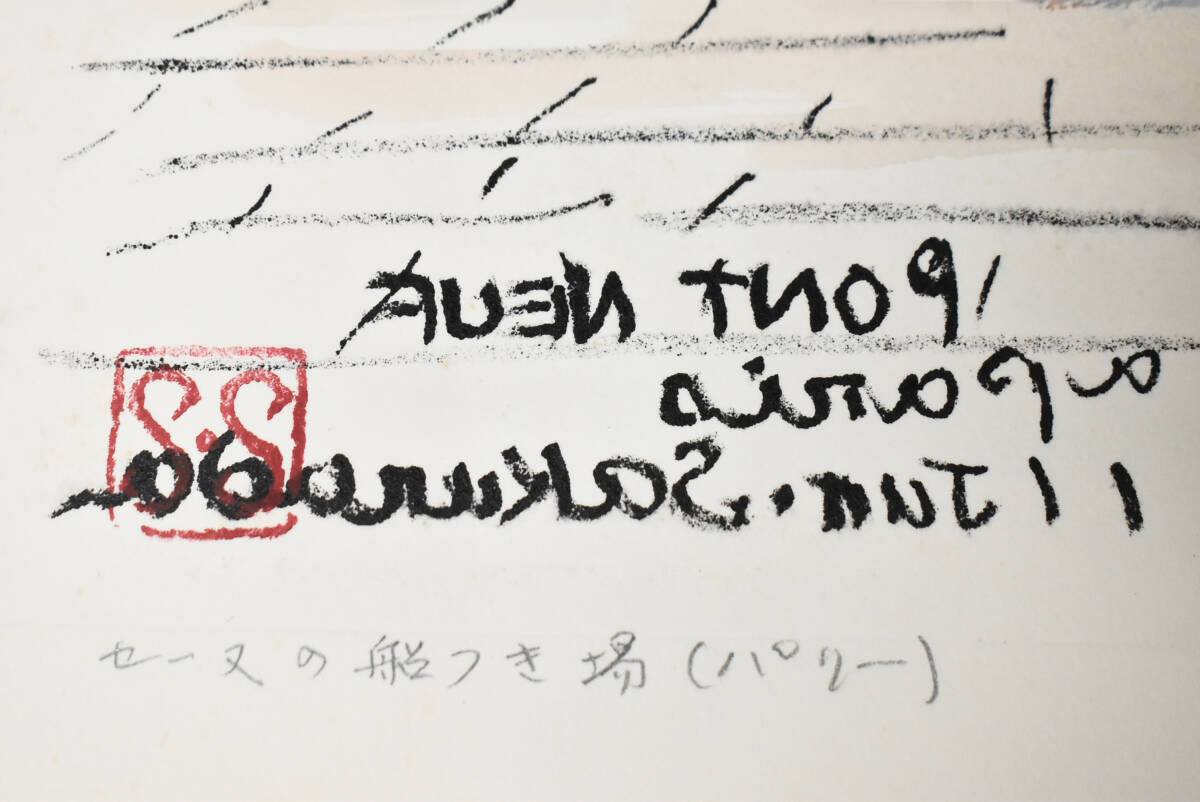 PONT NEUF
11 Jun. Sakurada
S.S
セーヌの船つき場(パリー)